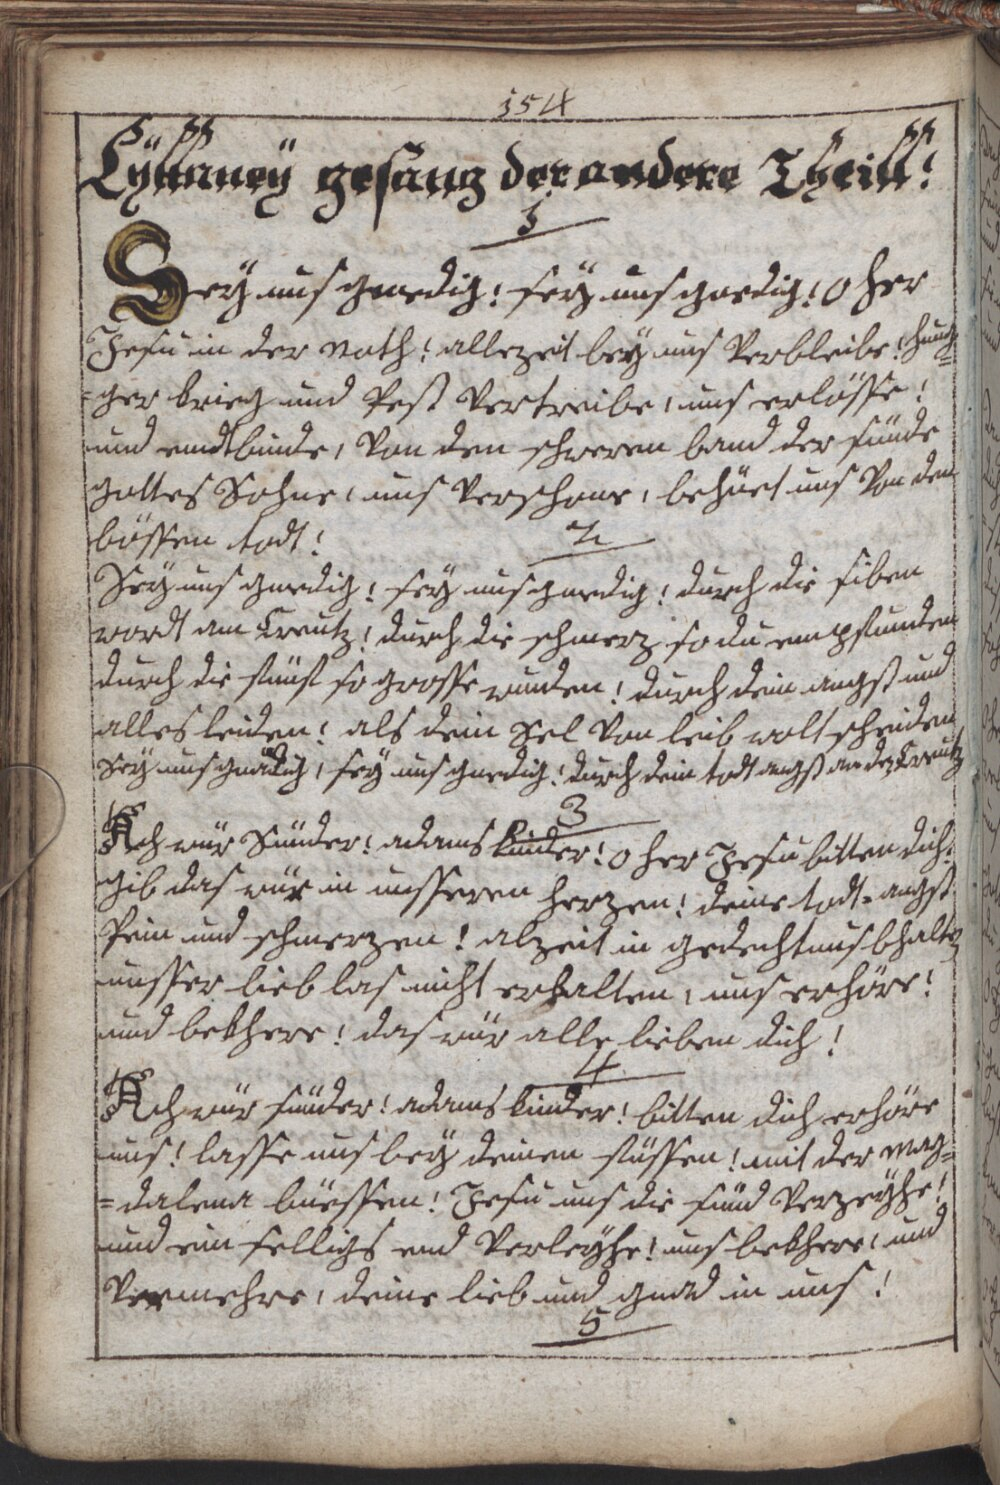 154
Lÿttaneÿ gesang der andere Theill!
1
Seÿ uns gnedig! seÿ uns gnedig! O her
Jesu in der noth! allezeit beÿ uns verbleibe! hung=
=ger krieg und Pest vertreibe, uns erlösse!
und endtbinde, von den schweren band der sünde
gottes Sohne, uns verschone, behüet uns von den
bössen todt!
2
Seÿ uns gnedig! seÿ uns gnedig! durch die siben
wordt am Creutz! durch die schmerz so du empfunden
durch die fünf so grosse wunden! durch dein angst und
alles leiden! als dein Sel von leib wolt scheiden
Seÿ uns gnädich, seÿ uns gnedig! durch dein todt angst an dem Creutz
3
Ach wür Sünder! adams kinder! O her Jesu bitten dich!
gib das wür in unsseren herzen! deine todt=angst
Pein und schmerzen! alzeit in gedechtnus bhalten
unsser lieb las nicht erkalten, uns erhöre!
und bekhere! das wür alle lieben dich!
4
Ach wür sünder! adams kinder! bitten dich erhöre
uns! lasse uns beÿ deinen füssen! mit der mag=
=dalena büessen! Jesu uns die sünd verzeÿhe!
und ein selligs end verleÿhe! uns bekhere, und
vermehre, deine lieb und gnad in uns!
5